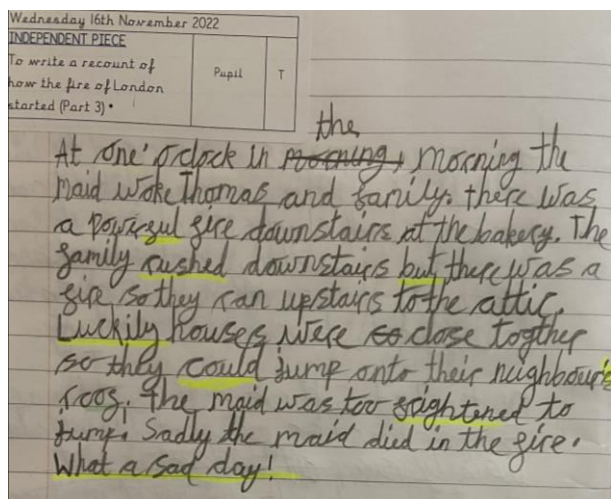 Wednesday 16th November 2022
INDEPENDENT PIECE
To write a recount of
how the fire of London
started (Part 3) •
Pupil
T
the
At one' o'clock in morning, morning the
maid woke Thomas and family. there was
a powerful fire downstairs at the bakery. The
family rushed downstairs but there was a
fire so they ran upstairs to the attic.
Luckily houses were so close togther
so they could jump onto their neighbour's
roof. The maid was too frightened to
jump. Sadly the maid died in the fire.
What a sad day!